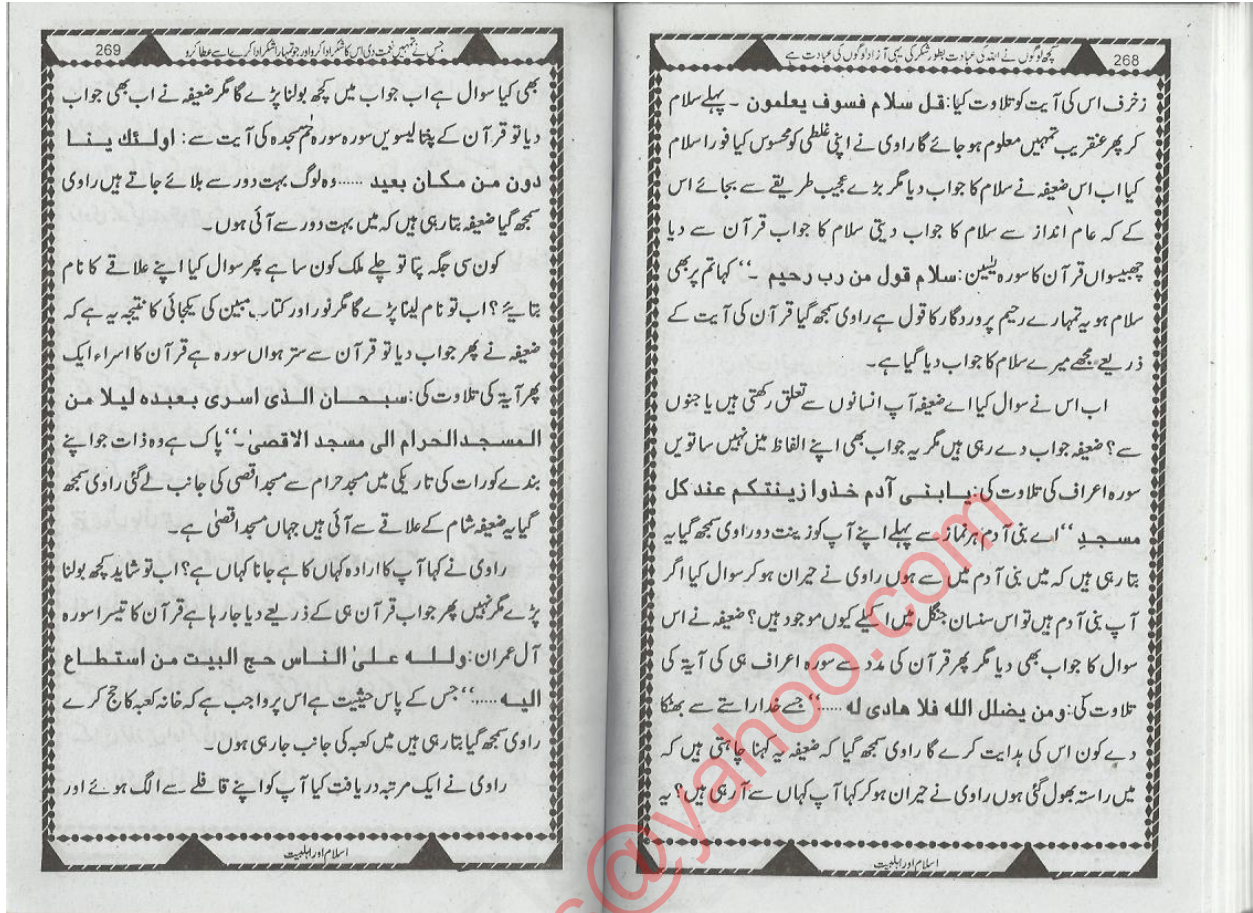 268
کچھ لوگوں نے اللہ کی عبادت بطور شکر کی یہی آزاد لوگوں کی عبادت ہے
زخرف اس کی آیت کو تلاوت کیا: قل سلام فسوف یعلمون ۔ پہلے سلام
کر پھر عنقریب تمہیں معلوم ہو جائے گا راوی نے اپنی غلطی کو محسوس کیا فوراً سلام
کیا اب اس ضعیفہ نے سلام کا جواب دیا مگر بڑے عجیب طریقے سے بجائے اس
کے کہ عام انداز سے سلام کا جواب دیتی سلام کا جواب قرآن سے دیا
چھبیسواں قرآن کا سورہ یٰسین: سلام قول من رب رحیم ۔‘‘ کہا تم پر بھی
سلام ہو یہ تمہارے رحیم پروردگار کا قول ہے راوی سمجھ گیا قرآن کی آیت کے
ذریعے مجھے میرے سلام کا جواب دیا گیا ہے۔
اب اس نے سوال کیا اے ضعیفہ آپ انسانوں سے تعلق رکھتی ہیں یا جنوں
سے؟ ضعیفہ جواب دے رہی ہیں مگر یہ جواب بھی اپنے الفاظ میں نہیں ساتویں
سورہ اعراف کی تلاوت کی: یابنی آدم خذوا زینتکم عند کل
مسجدٍ ‘‘اے بنی آدم ہر نماز سے پہلے اپنے آپ کو زینت دو راوی سمجھ گیا یہ
بتا رہی ہیں کہ میں بنی آدم میں سے ہوں راوی نے حیران ہو کر سوال کیا اگر
آپ بنی آدم ہیں تو اس سنسان جنگل میں اکیلے کیوں موجود ہیں؟ ضعیفہ نے اس
سوال کا جواب بھی دیا مگر پھر قرآن کی مدد سے سورہ اعراف ہی کی آیۃ کی
تلاوت کی: ومن یضلل اللہ فلا ھادی لہ .....‘‘ جسے خدا راستے سے بھٹکا
دے کون اس کی ہدایت کرے گا راوی سمجھ گیا کہ ضعیفہ یہ کہنا چاہتی ہیں کہ
میں راستہ بھول گئی ہوں راوی نے حیران ہو کر کہا آپ کہاں سے آ رہی ہیں؟ یہ
اسلام اور اہلبیت
269
جس نے تمہیں نعمت دی اس کا شکر ادا کرو اور جو تمہارا شکر ادا کرے اسے عطا کرو
بھی کیا سوال ہے اب جواب میں کچھ بولنا پڑے گا مگر ضعیفہ نے اب بھی جواب
دیا تو قرآن کے پنتالیسویں سورہ سورہ حٰم سجدہ کی آیت سے: اولئك ینا
دون من مکان بعید ......وہ لوگ بہت دور سے بلائے جاتے ہیں راوی
سمجھ گیا ضعیفہ بتا رہی ہیں کہ میں بہت دور سے آئی ہوں۔
کون سی جگہ پتا تو چلے ملک کون سا ہے پھر سوال کیا اپنے علاقے کا نام
بتایئے؟ اب تو نام لینا پڑے گا مگر نور اور کتاب مبین کی یکجائی کا نتیجہ یہ ہے کہ
ضعیفہ نے پھر جواب دیا تو قرآن سے سترہواں سورہ ہے قرآن کا اسراء ایک
پھر آیۃ کی تلاوت کی: سبحان الذی اسری بعبدہ لیلا من
المسجد الحرام الی مسجد الاقصیٰ۔‘‘ پاک ہے وہ ذات جو اپنے
بندے کو رات کی تاریکی میں مسجد حرام سے مسجد اقصی کی جانب لے گئی راوی سمجھ
گیا یہ ضعیفہ شام کے علاقے سے آئی ہیں جہاں مسجد اقصیٰ ہے۔
راوی نے کہا آپ کا ارادہ کہاں کا ہے جانا کہاں ہے؟ اب تو شاید کچھ بولنا
پڑے مگر نہیں پھر جواب قرآن ہی کے ذریعے دیا جا رہا ہے قرآن کا تیسرا سورہ
آل عمران: وللہ علیٰ الناس حج البیت من استطاع
الیہ .....‘‘ جس کے پاس حیثیت ہے اس پر واجب ہے کہ خانہ کعبہ کا حج کرے
راوی سمجھ گیا بتا رہی ہیں میں کعبہ کی جانب جا رہی ہوں۔
راوی نے ایک مرتبہ دریافت کیا آپ کو اپنے قافلے سے الگ ہوئے اور
اسلام اور اہلبیت
@yahoo.com